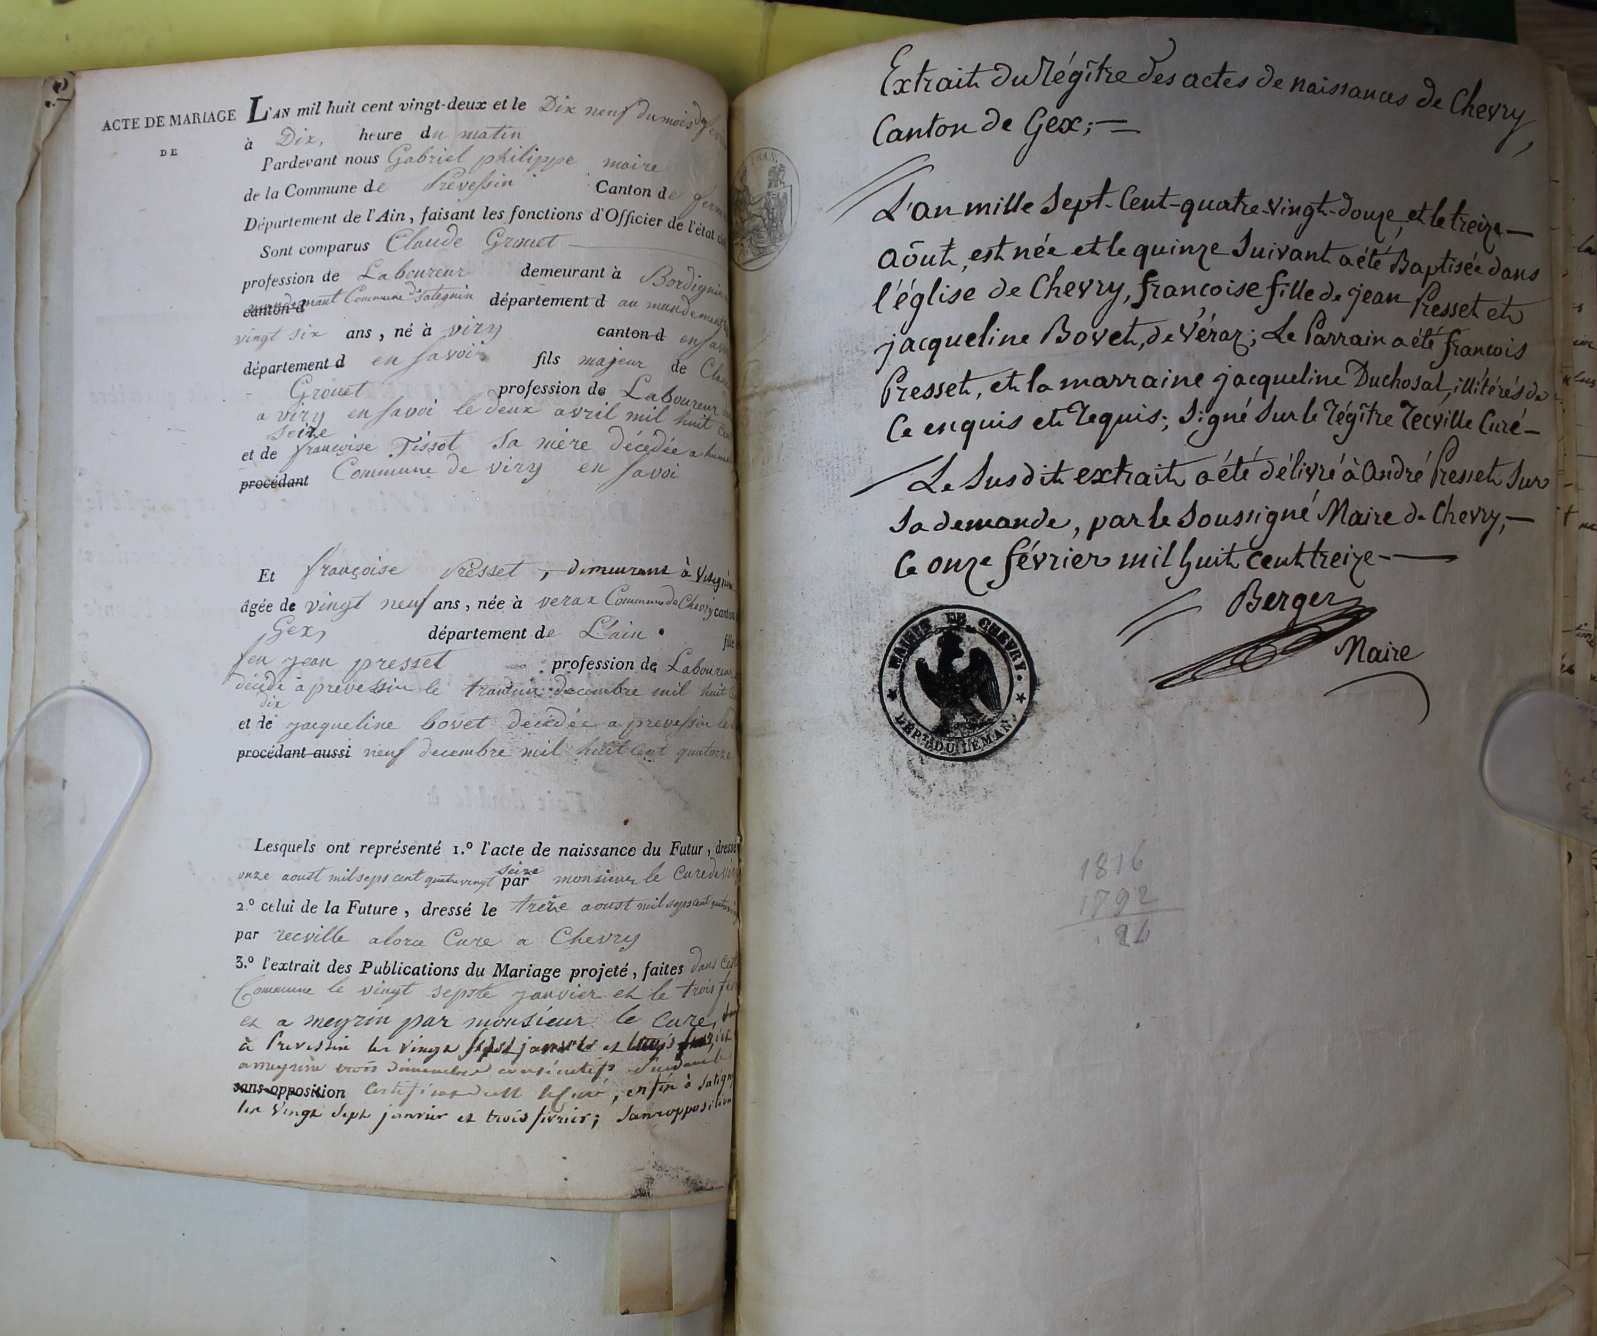 ACTE DE MARIAGE
DE
L'AN mil huit cent vingt-deux et le Dix neuf du mois de
à Dix, heure du matin
Pardevant nous Gabriel philippe maire
de la Commune de Prévessin Canton de
Département de l'Ain, faisant les fonctions d'Officier de l'état
Sont comparus Claude Grouet
profession de Laboureur demeurant à Bordignin
canton d Commune Sategnin département d au mandement
vingt six ans, né à viry canton d en
département d en Savoie fils majeur de
Grouet profession de Laboureur
a viry en savoi le deux avril mil huit
seize
et de françoise Tissot Sa mère décédée a
procédant Commune de viry en savoi
Et françoise Presset, demeurant à
âgée de vingt neuf ans, née à verax Commune de Chevry canton
Gex département de L'ain fille
feu jean presset profession de Laboureur
décédé à prevessin le decembre mil huit
dix
et de jacqueline bovet décédée a prevessin le
procédant aussi neuf decembre mil huit cent quatorze
Lesquels ont représenté 1.º l'acte de naissance du Futur, dressé
onze aoust mil sept cent quatrevingt seize par monsieur le Curé de
2.º celui de la Future, dressé le treize aoust mil sept cent
par recville alors Curé a Chevry
3.º l'extrait des Publications du Mariage projeté, faites dans
Commune le vingt sept janvier et le trois
et a meyrin par monsieur le Curé,
à Prevessin les vingt sept janvier et
a meyrin trois dimanches consécutifs
sans opposition Certificat dudit Curé, enfin à
les vingt sept janvier et trois février; sans opposition
Extrait du Régître des actes de naissances de Chevry,
Canton de Gex;
L'an mille Sept-Cent-quatre-vingt-douze, et le treize
août, est née et le quinze Suivant a été Baptisée dans
l'église de Chevry, françoise fille de jean Presset et
jacqueline Bovet, de Véraz; Le Parrain a été françois
Presset, et la marraine jacqueline Duchosal, illitérés de
Ce enquis et Requis; Signé Sur le Régître Recville Curé
Le Susdit extrait a été délivré à André Presset Sur
Sa demande, par le Soussigné Maire de Chevry,
Ce onze février mil huit cent treize
Berger
Maire
MAIRIE DE CHEVRY
DÉPT. DU LEMAN
1816
1792
24